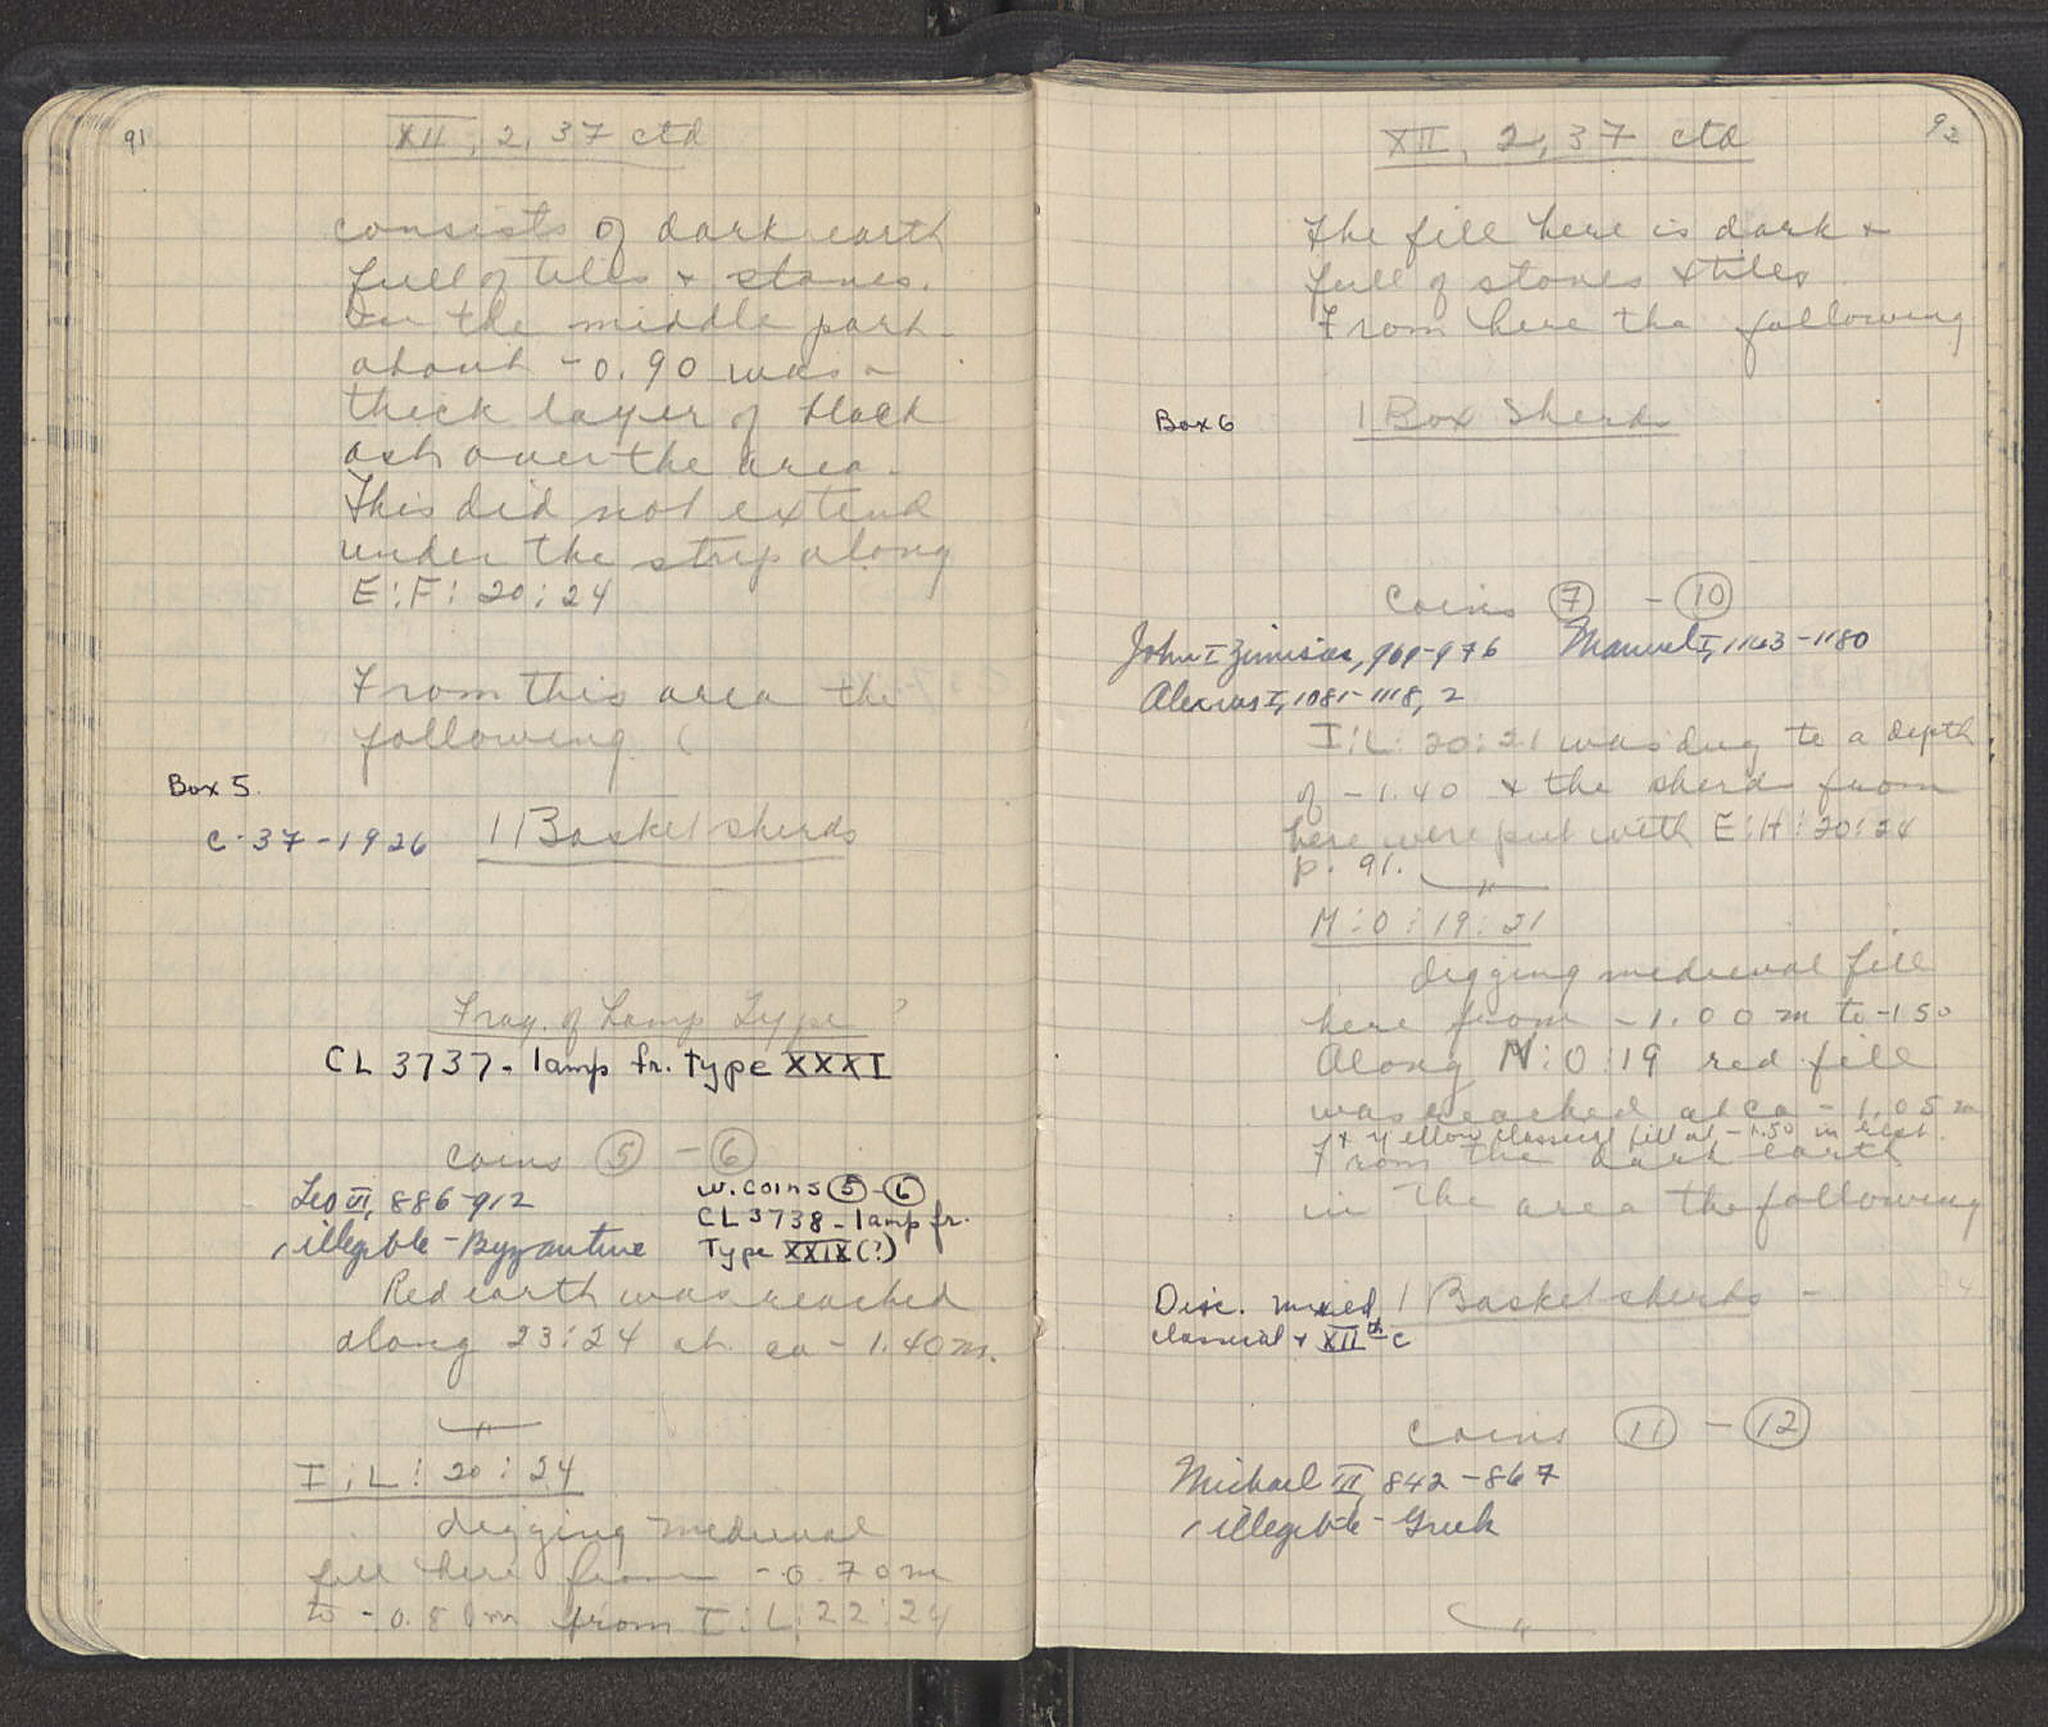 91
XII, 2, 37 ctd
consists of dark earth
full of tiles + stones.
In the middle part
about -0.90 was a
thick layer of black
ash over the area.
This did not extend
under the strip along
E:F: 20:24
From this area the
following (
Box 5.
C-37-1926 1 Basket sherds
Frag. of Lamp Type ?
CL 3737 - lamp fr. Type XXXI
coins 5 - 6
Leo VI, 886-912
1 illegible - Byzantine
w. coins 5 - 6
CL 3738 - lamp fr.
Type XXIX (?)
Red earth was reached
along 23:24 at ca - 1.40 m.
I:L: 20:24
digging medieval
fill here from -0.70 m
to -0.80 m from I:L:22:24
92
XII, 2, 37 ctd
The fill here is dark +
full of stones + tiles
From here the following
Box 6 1 Box Sherds
coins 7 - 10
John I Zimisces, 969-976 Manuel I, 1143-1180
Alexius I, 1081-1118, 2
I:L: 20:21 was dug to a depth
of -1.40 + the sherds from
here were put with E:H:20:24
p. 91.
M:O:19:21
digging medieval fill
here from -1.00 m to -1.50
Along N:O:19 red fill
was reached at ca -1.05 m
+ yellow classical fill at -1.50 in rest.
From the dark earth
in the area the following
Disc. mixed 1 Basket sherds -
classical + XIIth c
coins 11 - 12
Michael III, 842-867
1 illegible - Greek